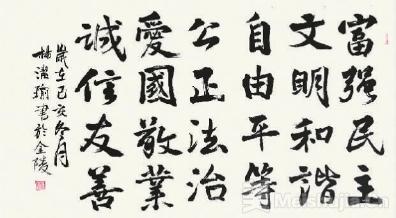 富强民主
文明和谐
自由平等
公正法治
愛國敬業
誠信友善
歲在己亥冬月
楊濙瑜書於金陵